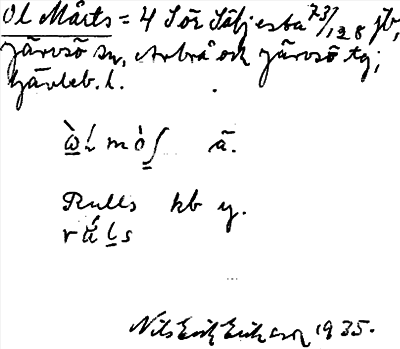 Ol Mårts = 4 Sör Säljesta 737/128 jb,
Järvsö sn, Arbrå och Järvsö tg,
Gävleb. l.
ä.
Rulls kb y.
Nils Erik Eriksson 1935.